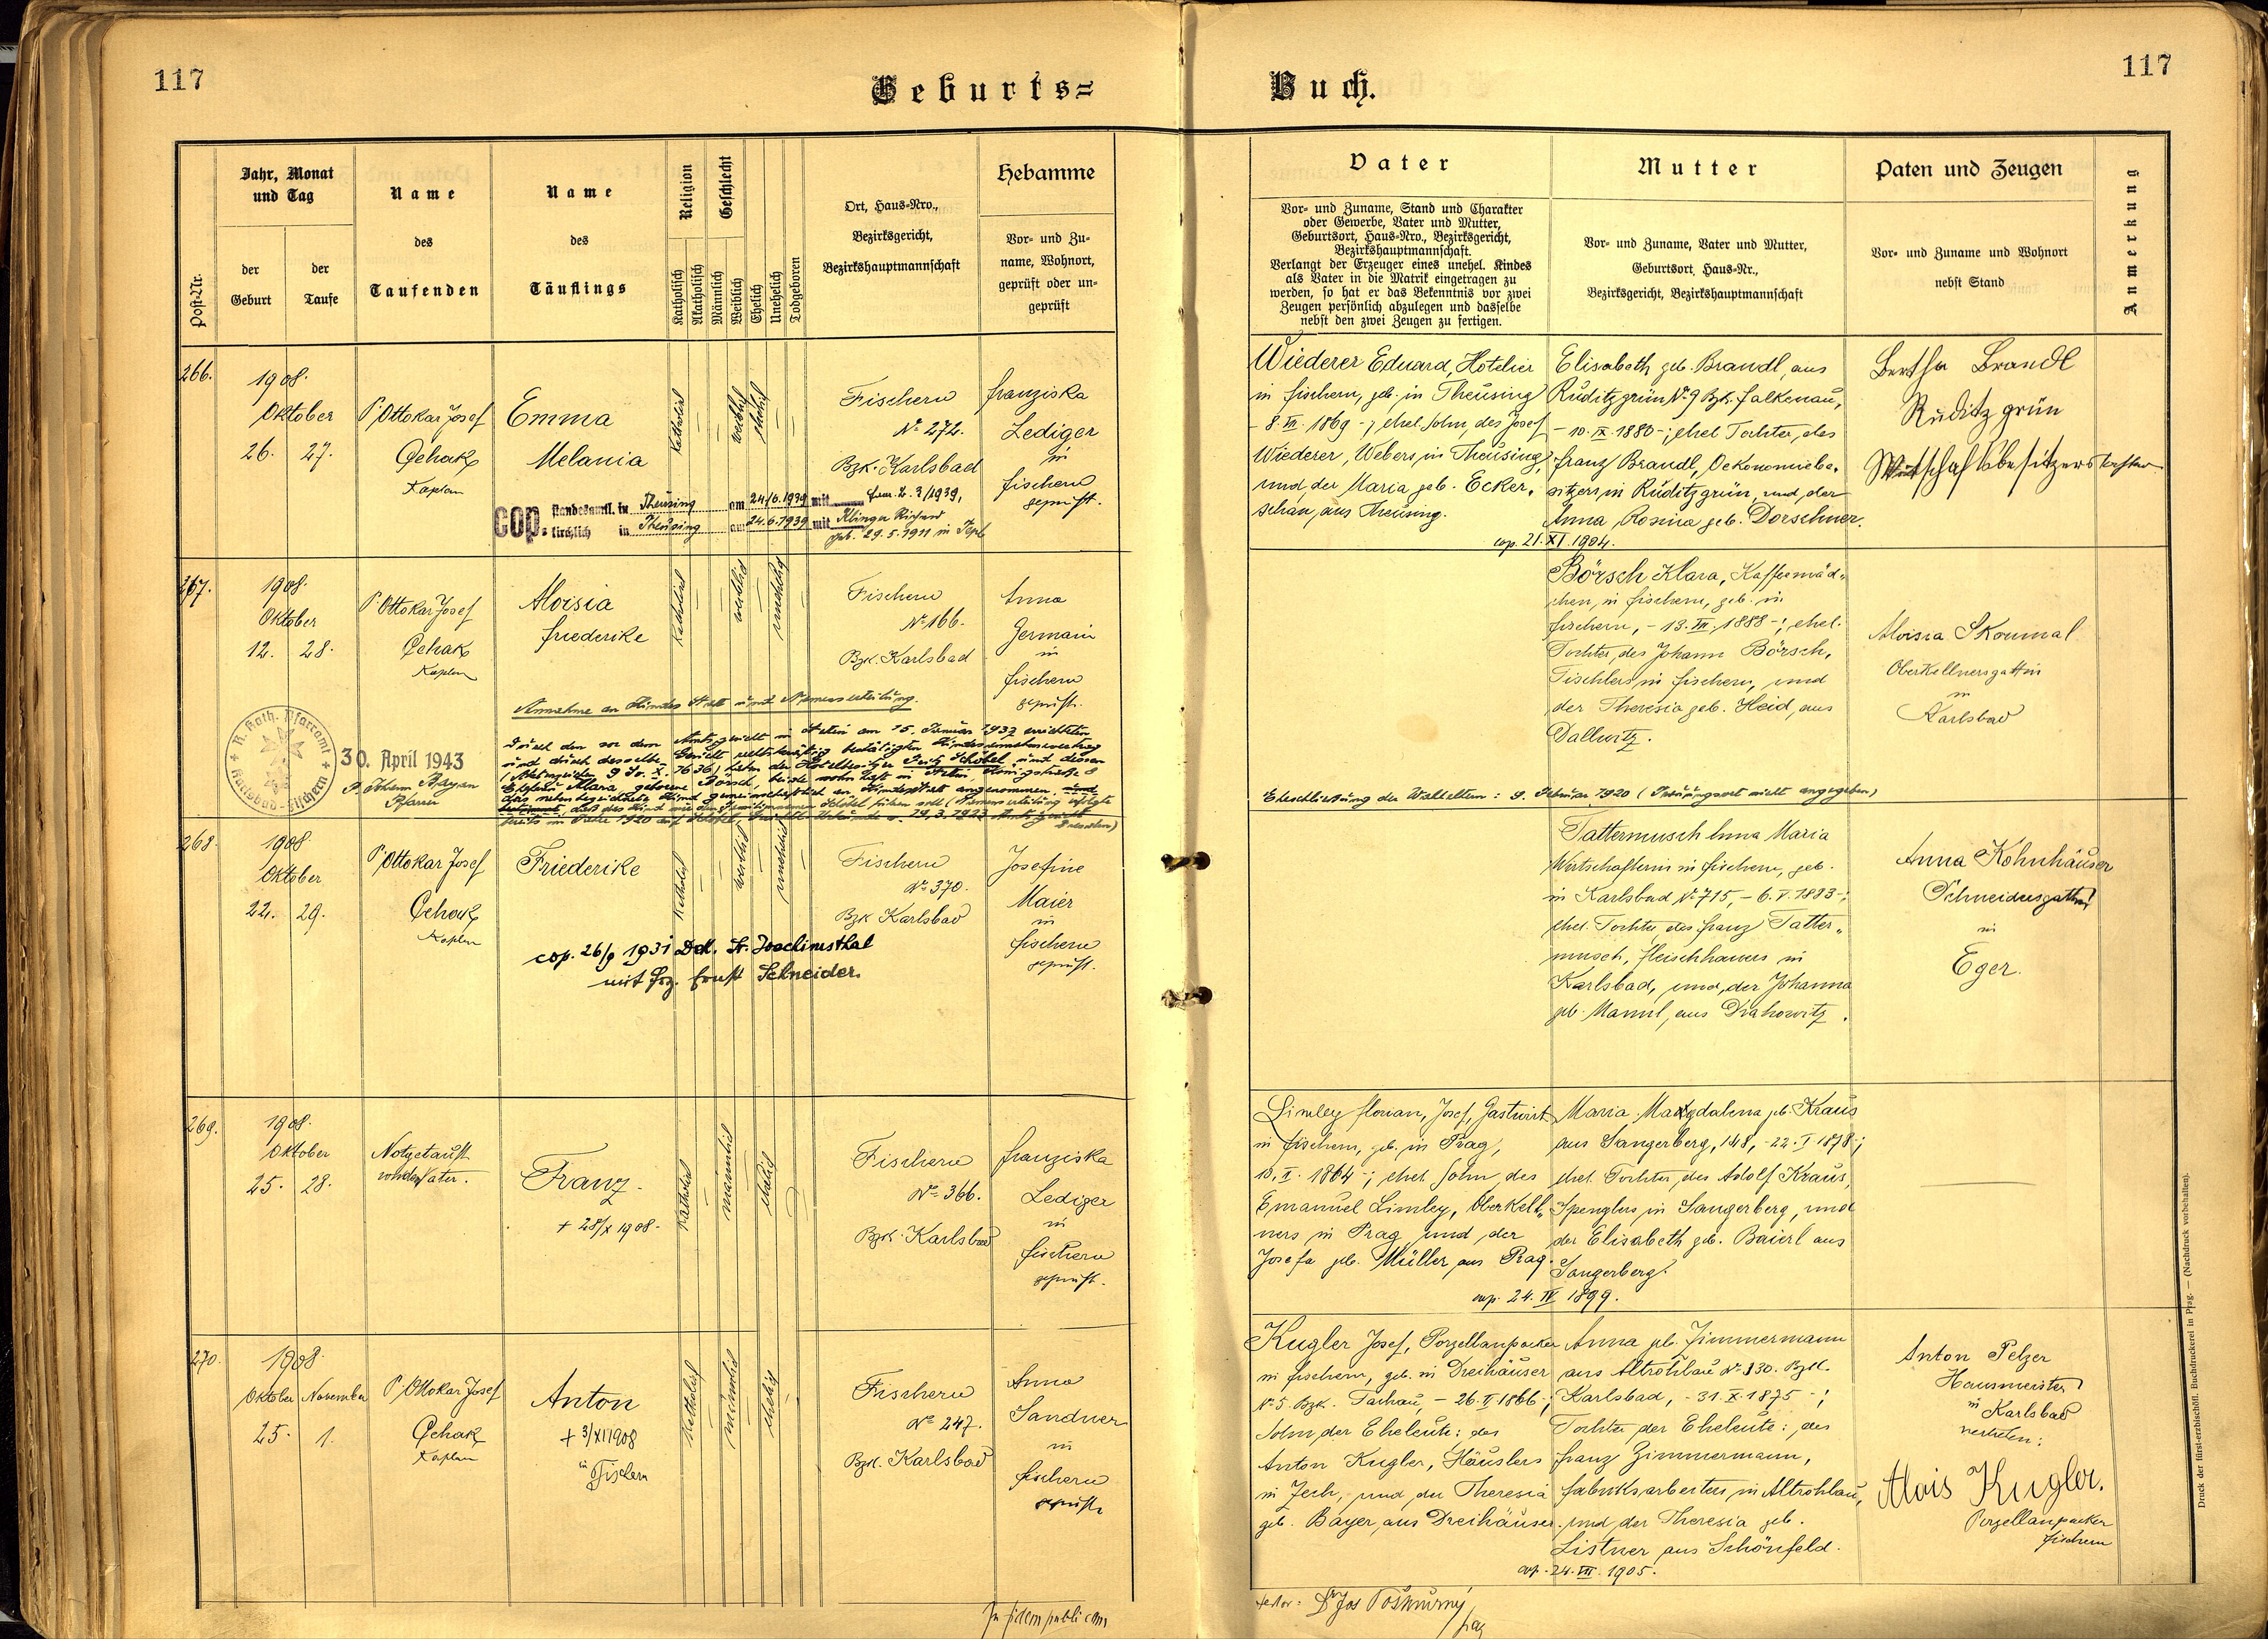 117
Geburts=
Buch.
117
Post-Nr.
Jahr, Monat
und Tag
der
Geburt
der
Taufe
Name
des
Taufenden
Name
des
Täuflings
Religion
Katholisch
Akatholisch
Geschlecht
Männlich
Weiblich
Ehelich
Unehelich
Todgeboren
Ort, Haus-Nro.,
Bezirksgericht,
Bezirkshauptmannschaft
Hebamme
Vor- und Zu-
name, Wohnort,
geprüft oder un-
geprüft
Vater
Vor- und Zuname, Stand und Charakter
oder Gewerbe, Vater und Mutter,
Geburtsort, Haus-Nro., Bezirksgericht,
Bezirkshauptmannschaft.
Verlangt der Erzeuger eines unehel. Kindes
als Vater in die Matrik eingetragen zu
werden, so hat er das Bekenntnis vor zwei
Zeugen persönlich abzulegen und dasselbe
nebst den zwei Zeugen zu fertigen.
Mutter
Vor- und Zuname, Vater und Mutter,
Geburtsort, Haus-Nr.,
Bezirksgericht, Bezirkshauptmannschaft
Paten und Zeugen
Vor- und Zuname und Wohnort
nebst Stand
Anmerkung
266.
1908.
Oktober
26. 27.
P. Ottokar Josef
Čehak
Kaplan
Emma
Melania
katholisch
weiblich
ehelich
Fischern
No 272.
Bzk. Karlsbad
Franziska
Lediger
in
Fischern
geprüft.
cop. standesamtl. in Theusing am 24/6.1939 mit
kirchlich in Theusing am 24.6.1939 mit Klinger Richard
geb. 29.5.1911 in Tepl
Wiederer Eduard, Hotelier
in Fischern, geb. in Theusing
- 8. VII. 1869 -; ehel. Sohn, des Josef
Wiederer, Webers in Theusing,
und der Maria geb. Ecker,
schan, aus Theusing.
Elisabeth geb. Brandl, aus
Ruditzgrün No 9 Bzk. Falkenau,
- 10. IX. 1880 -; ehel. Tochter des
Franz Brandl, Oekonomiebe,
sitzers in Ruditzgrün, und der
Anna Rosina geb. Dorschner.
cop. 21. XI. 1904.
Bertha Brandl
Ruditzgrün
Wirtschaftsbesitzerstochter
267.
1908.
Oktober
12. 28.
P. Ottokar Josef
Čehak
Kaplan
Aloisia
Friederike
katholisch
weiblich
unehelich
Fischern
No 166.
Bzk. Karlsbad
Anna
Germain
in
Fischern
geprüft.
Annahme an Kindes Statt und Namenserteilung.
Durch den vor dem Amtsgericht in Stettin am 15. Januar 1937 errichteten
und durch dasselbe Gericht rechtskräftig bestätigten Kindesannahmevertrag
haben der Hotelbesitzer Fritz Schöbel und dessen
Ehefrau Klara, geborene Börsch, beide wohnhaft in Stettin, Königstraße 8
das nebenbezeichnete Kind gemeinschaftlich an Kindesstatt angenommen.
R. Kath. Pfarramt
Karlsbad-Fischern
30. April 1943
Pfarrer
Börsch Klara, Kaffeemäd,
chen, in Fischern, geb. in
Fischern, - 13. VII. 1888 -; ehel.
Tochter, des Johann Börsch,
Tischlers in Fischern, und
der Theresia geb. Heid, aus
Dallwitz.
Eheschließung der Wahleltern: 9. Februar 1920 (Trauungsort nicht angegeben)
Aloisia Skoumal
Oberkellnersgattin
in
Karlsbad
268.
1908.
Oktober
22. 29.
P. Ottokar Josef
Čehak
Kaplan
Friederike
katholisch
weiblich
unehelich
Fischern
No 370.
Bzk Karlsbad
Josefine
Maier
in
Fischern
geprüft.
cop. 26/9 1931 Dek. St. Joachimsthal
mit Ernst Schneider.
Tattermusch Anna Maria
Wirtschafterin in Fischern, geb.
in Karlsbad No 715, - 6. V. 1883 -;
ehel. Tochter des Franz Tatter,
musch, Fleischhauers in
Karlsbad, und, der Johanna
geb. Mannl, aus Drahowitz.
Anna Kohnhäuser
Schneidersgattin
in
Eger.
269.
1908.
Oktober
25. 28.
Notgetauft
von der Vater.
Franz.
+ 28/X 1908.
katholisch
männlich
ehelich
Fischern
No 366.
Bzk. Karlsbad
Franziska
Lediger
in
Fischern
geprüft.
Limley Florian, Josef, Gastwirt
in Fischern, geb. in Prag,
10. V. 1864 -; ehel. Sohn, des
Emanuel Limley, Oberkell,
ners in Prag und der
Josefa geb. Müller aus Prag.
Maria Magdalena geb. Kraus
aus Sangerberg, 148, - 22. I 1878 -;
ehel. Tochter, des Adolf Kraus,
Spenglers in Sangerberg, und
der Elisabeth geb. Baierl aus
Sangerberg.
cop. 24. IV 1899.
270.
1908.
Oktober November
25. 1.
P. Ottokar Josef
Čehak
Kaplan
Anton
+ 3/XI 1908
in Fischern
katholisch
männlich
ehelich
Fischern
No 247.
Bzk. Karlsbad
Anna
Sandner
in
Fischern
geprüft
Kugler Josef, Porzellanpacker
in Fischern, geb. in Dreihäuser
No 5. Bzk. Tachau, - 26. II 1866 -;
Sohn, der Eheleute: des
Anton Kugler, Häuslers
in Zech, und der Theresia
geb. Bayer, aus Dreihäuser.
Anna geb. Zimmermann
aus Altrohlau No 130. Bzk.
Karlsbad, - 31. X. 1875 -;
Tochter der Eheleute: des
Franz Zimmermann,
Fabriksarbeiters in Altrohlau,
und der Theresia geb.
Listner aus Schönfeld.
cop. 24. VII. 1905.
Anton Pelzer
Hausmeister
in Karlsbad
vertreten:
Alois Kugler.
Porzellanpacker
Fischern
In fidem publicam
Druck der fürst-erzbischöfl. Buchdruckerei in Prag. — (Nachdruck vorbehalten).